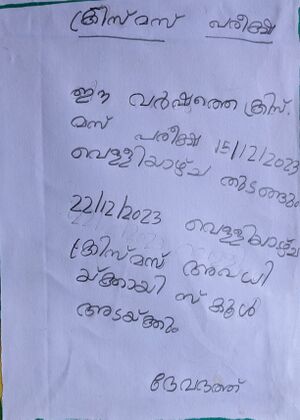 ക്രിസ്മസ് പരീക്ഷ
ഈ വർഷത്തെ ക്രിസ്.
മസ് പരീക്ഷ 15/12/2023
വെള്ളിയാഴ്ച തുടങ്ങും
22/12/2023 വെള്ളിയാഴ്ച
ക്രിസ്മസ് അവധി
യ്ക്കായി സ്കൂൾ
അടയ്ക്കും
ദേവദത്ത്